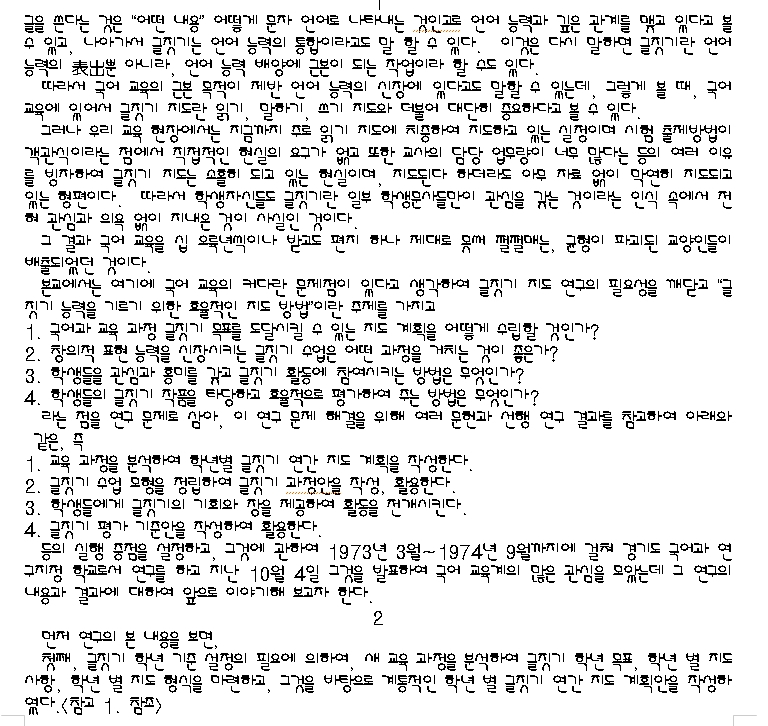 글을 쓴다는 것은 “어떤 내용” 어떻게 문자 언어로 나타내는 것이고로 언어 능력과 깊은 관계를 맺고 있다고 볼
수 있고, 나아가서 글짓기는 언어 능력의 통합이라고도 말 할 수 있다. 이것은 다시 말하면 글짓기란 언어
능력의 表出뿐 아니라, 언어 능력 배양에 근본이 되는 작업이라 할 수도 있다.
따라서 국어 교육의 근본 목적이 제반 언어 능력의 신장에 있다고도 말할 수 있는데, 그렇게 볼 때, 국어
교육에 있어서 글짓기 지도란 읽기, 말하기, 쓰기 지도와 더불어 대단히 중요하다고 볼 수 있다.
그러나 우리 교육 현장에서는 지금까지 주로 읽기 지도에 치중하여 지도하고 있는 실정이며 시험 출제방법이
객관식이라는 점에서 직접적인 현실의 요구가 없고 또한 교사의 담당 업무량이 너무 많다는 등의 여러 이유
를 빙자하여 글짓기 지도는 소홀히 되고 있는 현실이며, 지도된다 하더라도 아무 자료 없이 막연히 지도되고
있는 형편이다. 따라서 학생자신들도 글짓기란 일부 학생문사들만이 관심을 갖는 것이라는 인식 속에서 전
혀 관심과 의욕 없이 지내온 것이 사실인 것이다.
그 결과 국어 교육을 십 오륙년씩이나 받고도 편지 하나 제대로 못써 쩔쩔매는, 균형이 파괴된 교양인들이
배출되었던 것이다.
본교에서는 여기에 국어 교육의 커다란 문제점이 있다고 생각하여 글짓기 지도 연구의 필요성을 깨닫고 “글
짓기 능력을 기르기 위한 효율적인 지도 방법”이란 주제를 가지고
1. 국어과 교육 과정 글짓기 목표를 도달시킬 수 있는 지도 계획을 어떻게 수립할 것인가?
2. 창의적 표현 능력을 신장시키는 글짓기 수업은 어떤 과정을 거치는 것이 좋은가?
3. 학생들을 관심과 흥미를 갖고 글짓기 활동에 참여시키는 방법은 무엇인가?
4. 학생들의 글짓기 작품을 타당하고 효율적으로 평가하여 주는 방법은 무엇인가?
라는 점을 연구 문제로 삼아, 이 연구 문제 해결을 위해 여러 문헌과 선행 연구 결과를 참고하여 아래와
같은, 즉
1. 교육 과정을 분석하여 학년별 글짓기 연간 지도 계획을 작성한다.
2. 글짓기 수업 모형을 정립하여 글짓기 과정안을 작성, 활용한다.
3. 학생들에게 글짓기의 기회와 장을 제공하여 활동을 전개시킨다.
4. 글짓기 평가 기준안을 작성하여 활용한다.
등의 실행 중점을 설정하고, 그것에 관하여 1973년 3월~1974년 9월까지에 걸쳐 경기도 국어과 연
구지정 학교로서 연구를 하고 지난 10월 4일 그것을 발표하여 국어 교육계의 많은 관심을 모았는데 그 연구의
내용과 결과에 대하여 앞으로 이야기해 보고자 한다.
2
먼저 연구의 본 내용을 보면,
첫째, 글짓기 학년 기준 설정의 필요에 의하여, 새 교육 과정을 분석하여 글짓기 학년 목표, 학년 별 지도
사항, 학년 별 지도 형식을 마련하고, 그것을 바탕으로 계통적인 학년 별 글짓기 연간 지도 계획안을 작성하
였다.<참고 1. 참조>